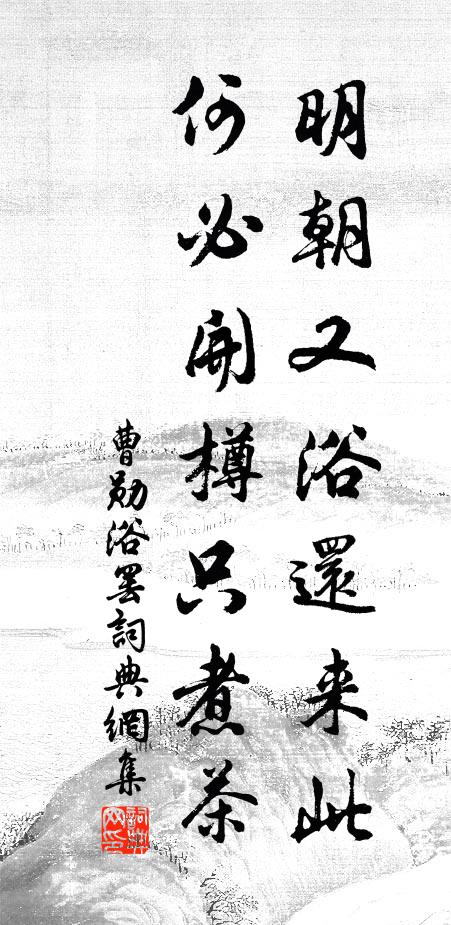 明朝又浴還来此
何必開樽只煮茶
曹勛浴罢詞典網集